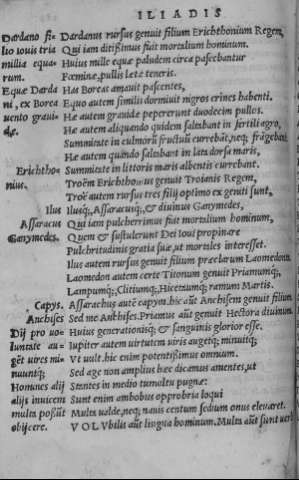 ILIADIS
Dardano fi- Dardanus rursus genuit filium Erichthonium Regem,
lio Iouis tria Qui iam ditißimus fuit mortalium hominum.
milia equa- Huius mille equæ paludem circa pascebantur
rum. Fœminæ, pullis lætæ teneris.
Equæ Darda Has Boreas amauit pascentes,
ni, ex Borea Equo autem similis dormiuit nigros crines habenti.
uento graui- Hæ autem grauidæ pepererunt duodecim pullos.
dæ. Hæ autem aliquando quidem saltabant in fertili agro,
Summitate in culmorũ fructuũ currebãt, neq; frãgebãt
Hæ autem quando saltabant in lata dorsa maris,
Erichtho- Summitate in littoris maris albentis currebant.
nius. Troëm Erichthonius genuit Troianis Regem,
Troë autem rursus tres filij optimo ex geniti sunt,
Ilus Ilusq;, Assaracusq;, & diuinus Ganymedes,
Assaracus Qui iam pulcherrimus fuit mortalium hominum,
Ganymedes. Quem & sustulerunt Dei Ioui propinare
Pulchritudinis gratia suæ, ut mortales interesset.
Ilus autem rursus genuit filium præclarum Laomedonta
Laomedon autem certe Titonum genuit Priamumq;,
Lampumq;, Clitiumq;, Hicetaumq; ramum Martis.
Capys. Assarachus autẽ capym, hic aũt Anchisem genuit filium
Anchises Sed me Anchises, Priamus aũt genuit Hectora diuinum.
Dij pro uo- Huius generationisq; & sanguinis glorior esse.
luntate au- Iupiter autem uirtutem uiris augetq; minuitq;
gẽt uires mi- Vt uult. hic enim potentißimus omnium.
nuuntq; Sed age non amplius hæc dicamus amentes, ut
Homines alij Stantes in medio tumultu pugnæ:
alijs inuicem Sunt enim ambobus opprobria loqui
multa possũt Multa ualde, neq; nauis centum sedium onus eleuaret.
obijcere. VOLVbilis aũt lingua hominum. Multa aũt sunt uerba